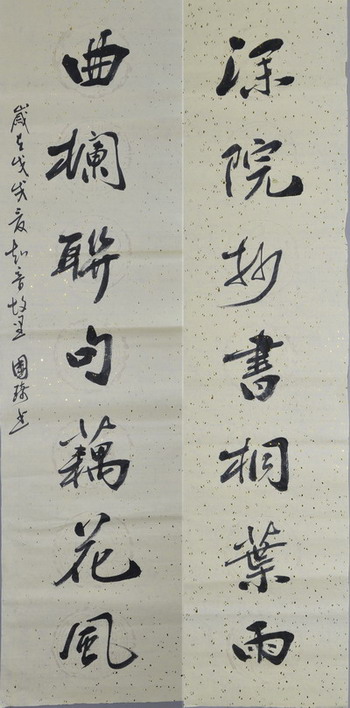 深院抄書桐葉雨
曲欄聯句藕花風
歲在戊戌夏知音故里國強書